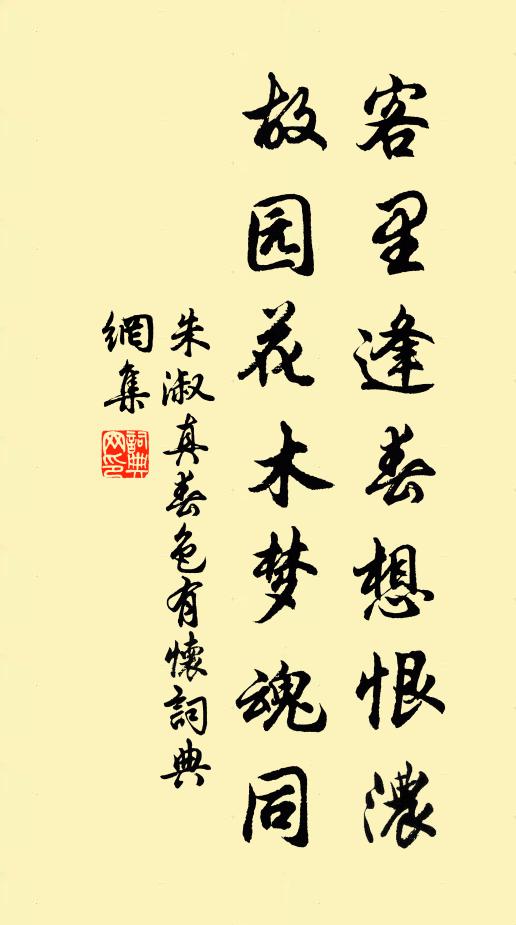 客里逢春想恨濃
故园花木梦魂同
朱淑真春色有懷詞典
網集
詞典
网印